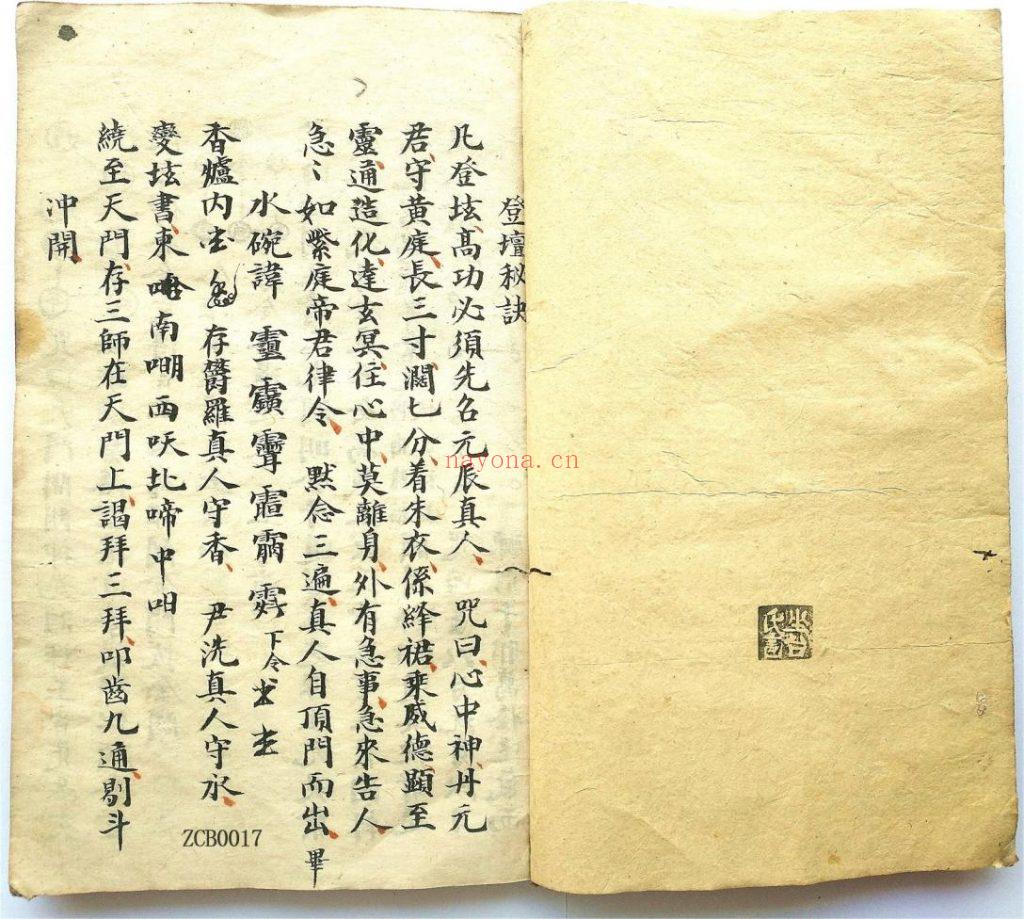 登壇秘訣
凡登坛、高功必須先召元辰真人、 咒曰、心中神、丹元
君、守黄庭、長三寸、濶七分、着朱衣、係絳裙、乘威德、顯至
靈、通造化、達玄冥、住心中、莫離身、外有急事、急來告人
急〻如紫庭帝君律令、 黙念三遍、真人自頂門而出、畢
水碗諱 下令
香爐内 存欝羅真人守香、 尹洗真人守水、
變坛書、東 南嘲西呋北啼中呬
繞至天門、存三師在天門上、謁拜三拜、叩齒九通、剔斗
冲開、
nayona.cn
ZCB0017